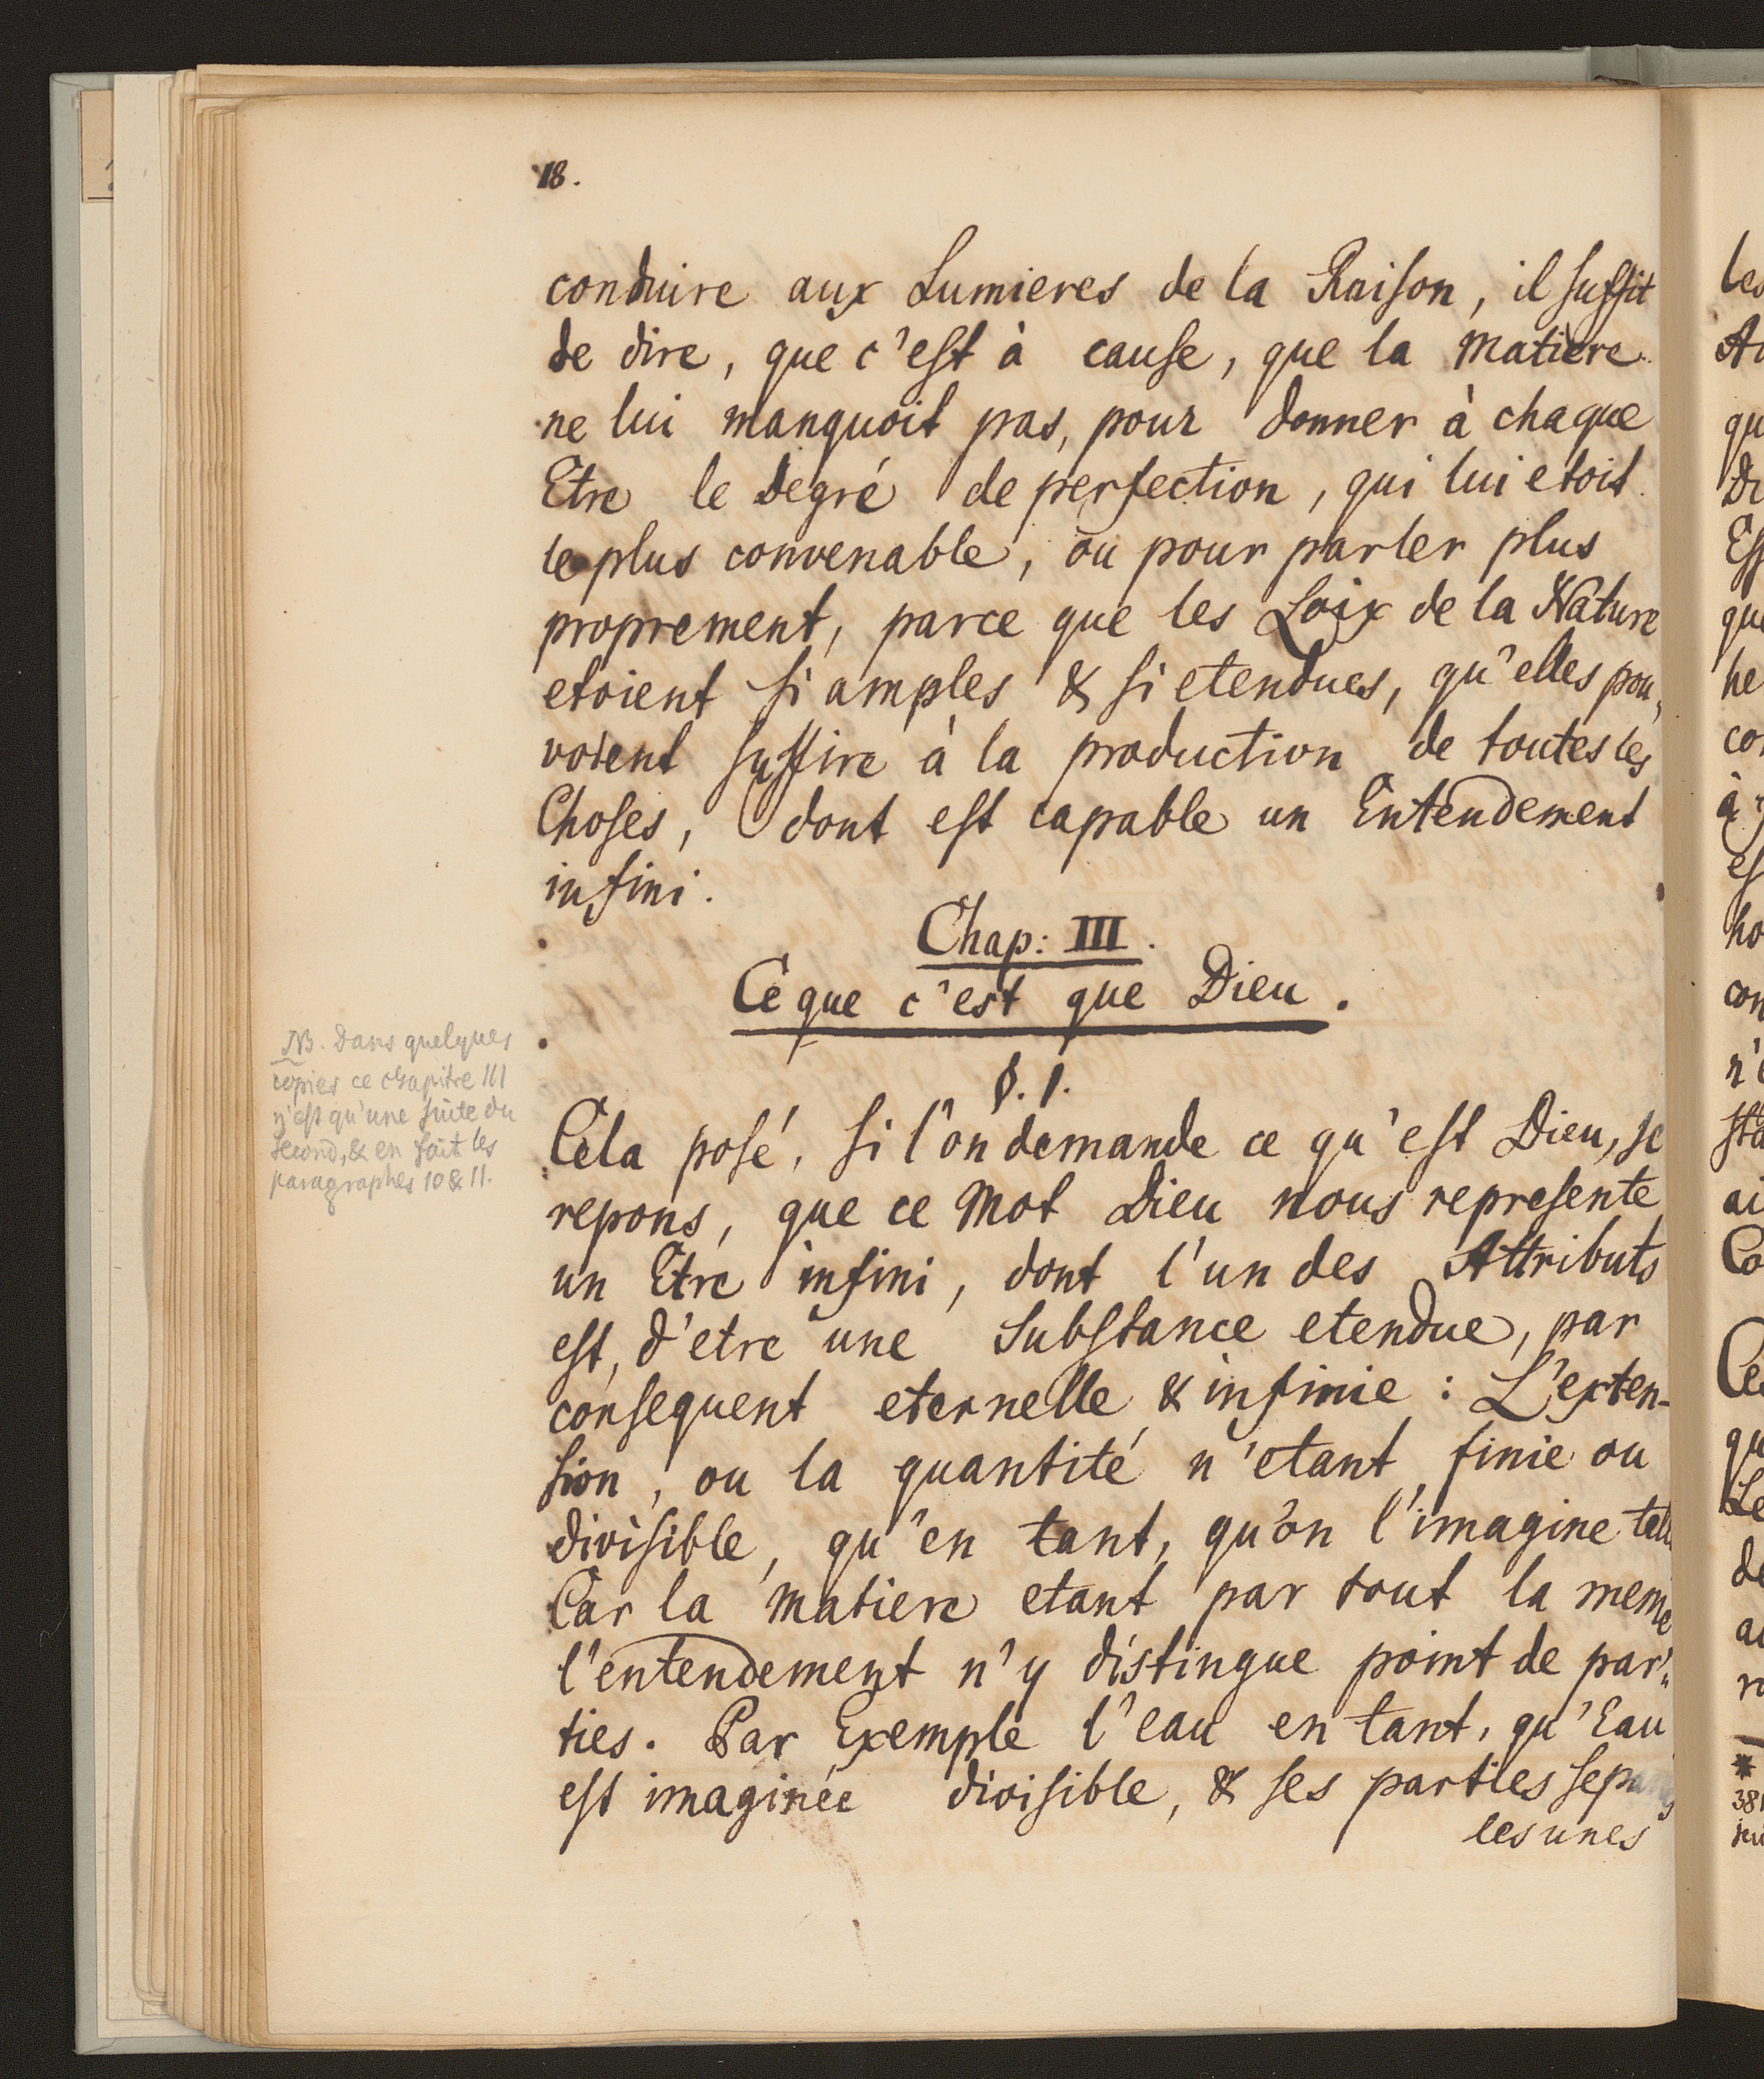 18.
conduire aux Lumieres de la Raison, il suffit
de dire, que c'est à cause, que la matière
ne lui manquoit pas, pour donner à chaque
Etre le degré de perfection, qui lui etoit
le plus convenable, ou pour parler plus
proprement, parce que les Loix de la Nature
etoient si amples & si etendues, qu'elles pou,
voient suffire à la production de toutes les
Choses, dont est capable un Entendement
infini.
Chap: III.
Ce que c'est que Dieu.
§. 1.
NB. Dans quelques
copies ce chapitre III
n'est qu'une suite du
second, & en fait les
paragraphes 10 & 11.
Cela posé, si l'on demande ce qu'est Dieu, je
repons, que ce Mot Dieu nous represente
un Etre infini, dont l'un des Attributs
est, d'etre une Substance etendue, par
consequent eternelle & infinie: L'exten-
sion, ou la quantité n'etant finie ou
divisible, qu'en tant, qu'on l'imagine telle
Car la matiere etant par tout la meme
l'entendement n'y distingue point de par„
ties. Par Exemple l'eau en tant, qu'Eau
est imaginée divisible, & ses parties separées
les unes